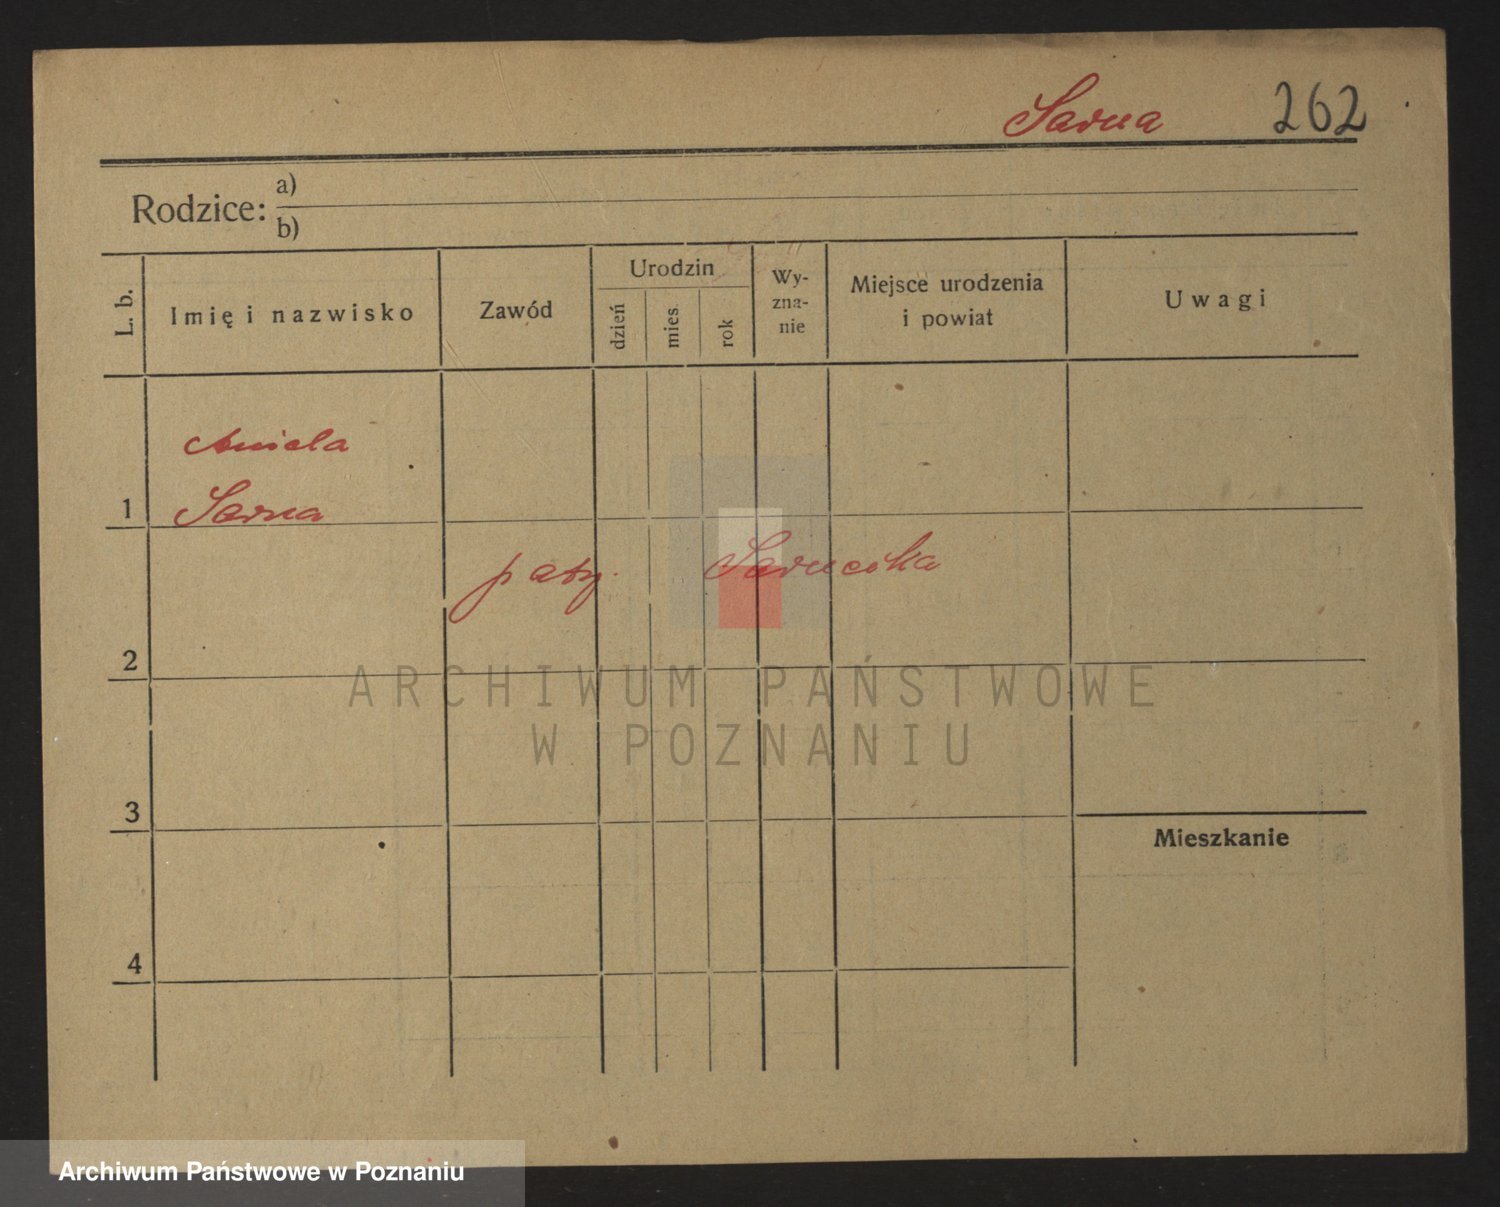 Sarna 262
Rodzice: a)
b)
L. b.
Imię i nazwisko
Zawód
Urodzin
dzień
mies.
rok
Wy-
zna-
nie
Miejsce urodzenia
i powiat
Uwagi
Aniela
1 Sarna
patrz Sarnecka
2
3
Mieszkanie
4
ARCHIWUM PAŃSTWOWE
W POZNANIU
Archiwum Państwowe w Poznaniu